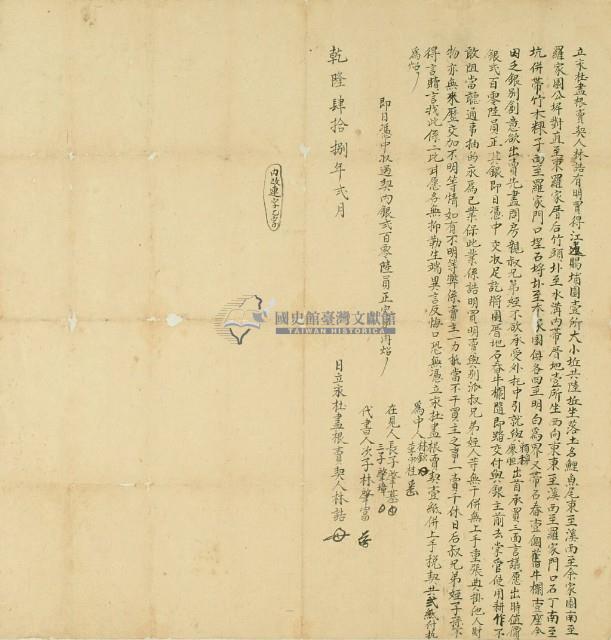 立永杜盡根賣契人林詰有明買得江連賜埔園壹所大小坵共陸坵坐落土名鯉魚尾東至溪西至余家園南至
羅家園公坪對直至東羅家厝后竹頭北至水溝內帶厝地壹所坐西向東東至溪西至羅家門口石丁南至
坑併帶竹木粿子南至羅家門口埕石坪北至本家園俱各四至明白為界又帶石舂壹個舊牛欄壹座今
因乏銀別創意欲出賣先盡問房親叔兄弟姪不欲承受外托中引就與出首承買三面言議愿出時值價
銀弍百零陸員正其銀即日憑中交收足訖將園厝地石舂牛欄隨即踏交付與銀主前去掌管使用耕作不
敢阻當聽過事抽的永為己業保此業係詰明買明賣與別派叔兄弟姪人等無干併無上手重張典掛他人財
物亦無來歷交加不明等情如有不明等弊係賣主一力抵當不干買主之事一賣千休日后叔兄弟姪子孫不
得言贖言找此係二比甘愿各無抑勒生端異言反悔口恐無憑立永杜盡根賣契壹紙併上手稅契共弍紙付執
為炤
即日憑中收過契內銀弍百零陸員正完足再炤
為中人林
在見人長子肇基
三子肇
代書人次子林肇富
乾隆肆拾捌年弍月 日立永杜盡根賣契人林詰
內改連字乙字
國史館臺灣文獻館
TAIWAN HISTORICA